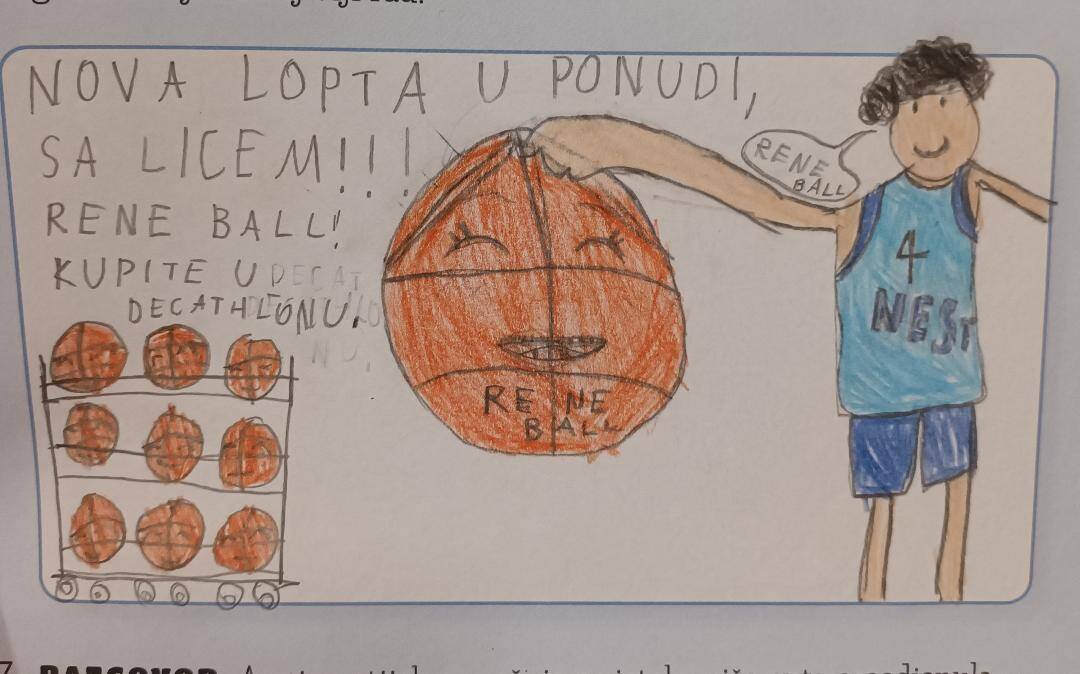 NOVA LOPTA U PONUDI,
SA LICEM!!!
RENE BALL!
KUPITE U
DECATHLONU.
RENE
BALL
RENE
BALL
4
NEST